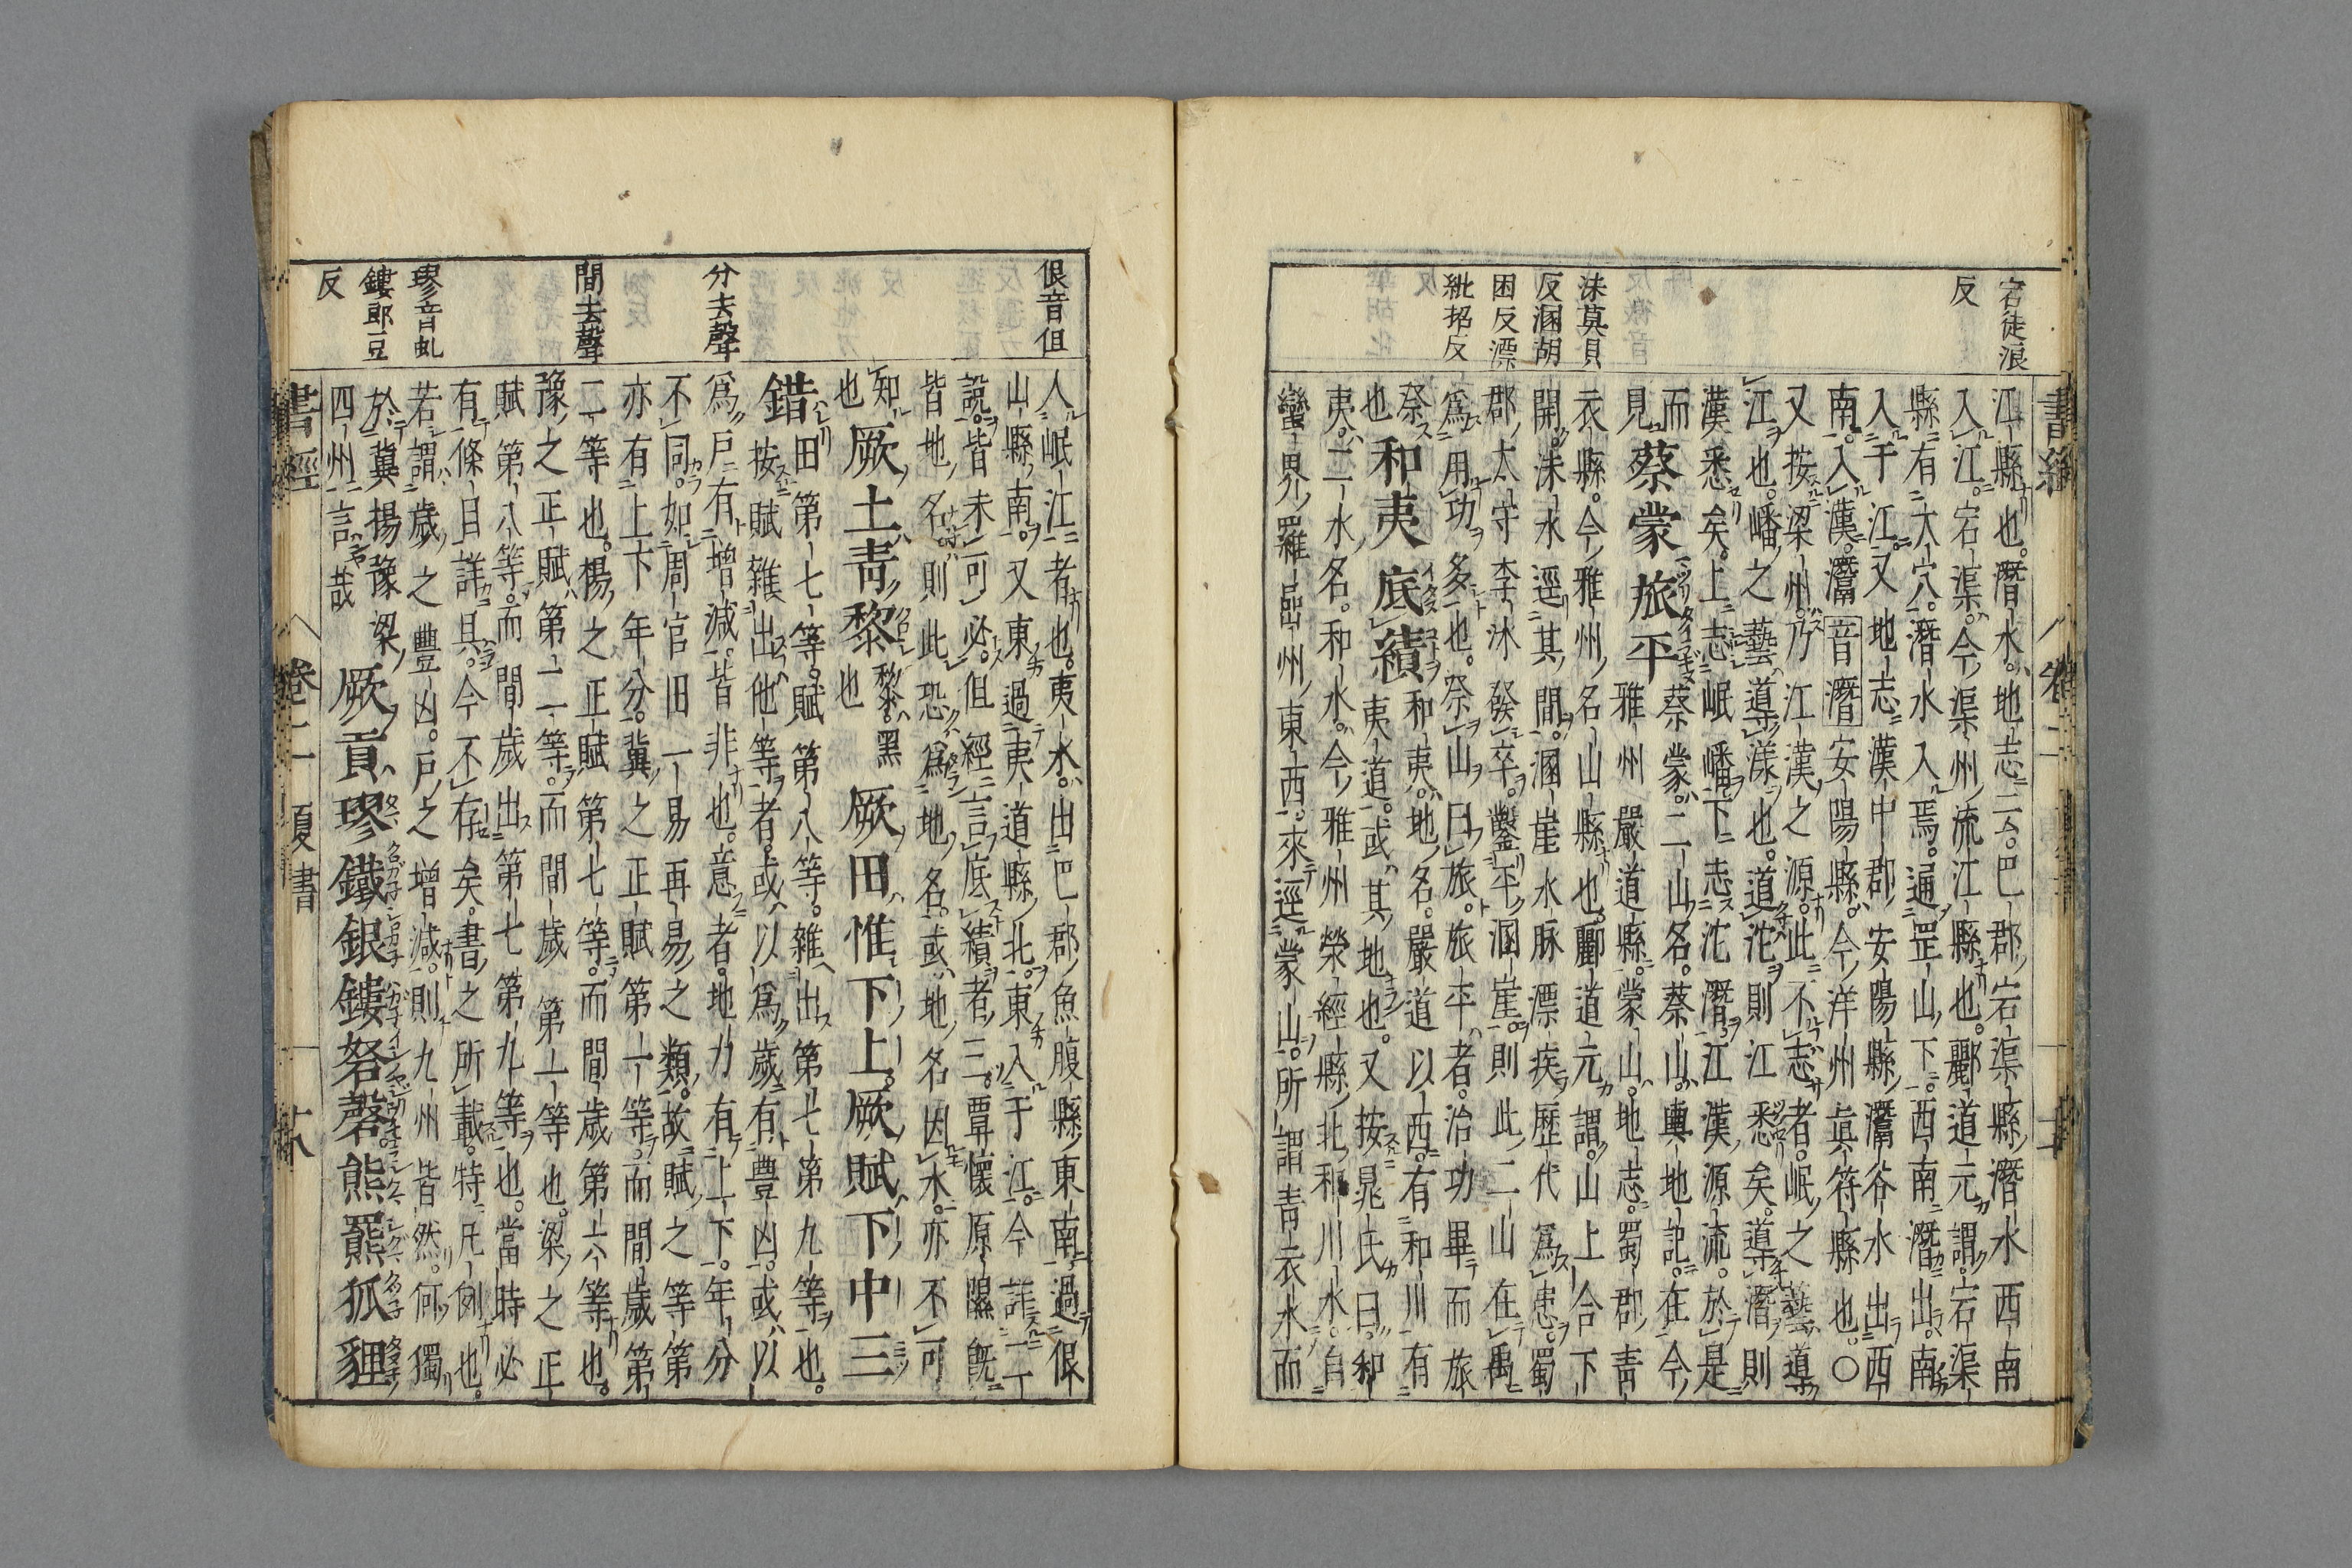 宕徒浪
反
沬莫貝
反溷胡
困反漂
紕招反
江縣也。潛水。地志云。巴郡宕渠縣潛水西南
入江。宕渠。今渠州流江縣也。酈道元謂宕渠
縣有大穴。潛水入焉。通罡山下。西南潛出。南
入于江。又地志漢中郡安陽縣灊谷水出西
南。入漢。灊音潛安陽縣。今洋州眞符縣也。○
又按梁州。乃江漢之源。此不志者。岷之藝導
江也。嶓之藝導漾也。道沱則江悉矣。導潛則
漢悉矣。上志岷嶓下志沱潛江漢源流。於是
而
見蔡蒙旅平蔡蒙。二山名。蔡山。輿地記。在今
雅州嚴道縣。蒙山。地志。蜀郡青
衣縣。今雅州名山縣也。酈道元謂。山上合下
開。沬水逕其間。溷崖水脉漂疾。歷代爲患。蜀
郡太守李氷發卒。鑿平溷崖。則此二山在禹
爲用功多也。祭山曰旅。旅平者。治功畢而旅
祭
也和夷底績和夷。地名。嚴道以西。有和川有
夷道。或其地也。又按晁氏曰。和
夷。二水名。和水。今雅州榮經縣北和川水。自
蠻界羅嵒州東西。來逕蒙山。所謂青衣水而
書經 卷二
很音但
分去聲
間去聲
璆音虬
鏤郎豆
反
入岷江者也。夷水。出巴郡魚腹縣東南過很
山縣南。又東過夷道縣北。東入于江。今詳二
說。皆未可必。但經言底績者三。覃懷原隰旣
皆地名。則此恐爲地名。或地名因水。亦不可
知
也厥土青黎黎。黑
也厥田惟下上。厥賦下中三
錯田第七等。賦第八等。雜出第七第九等也。
按賦雜出他等者。或以爲歲有豊凶。或以
爲戶有增減。皆非也。意者。地力有上下。年分
不同。如周官田一易再易之類。故賦之等第
亦有上下年分。冀之正賦第一等。而間歲第
二等也。揚之正賦第七等。而間歲第六等也。
豫之正賦第二等。而間歲第一等也。梁之正
賦第八等。而間歲出第七第九等也。當時必
有條目詳具。今不存矣。書之所載。特凡例也。
若謂歲之豊凶。戶之增減。則九州皆然。何獨
於冀揚豫梁
四州言哉厥貢璆鐵銀鏤砮磬熊羆狐貍
書經 卷二 夏書 十八